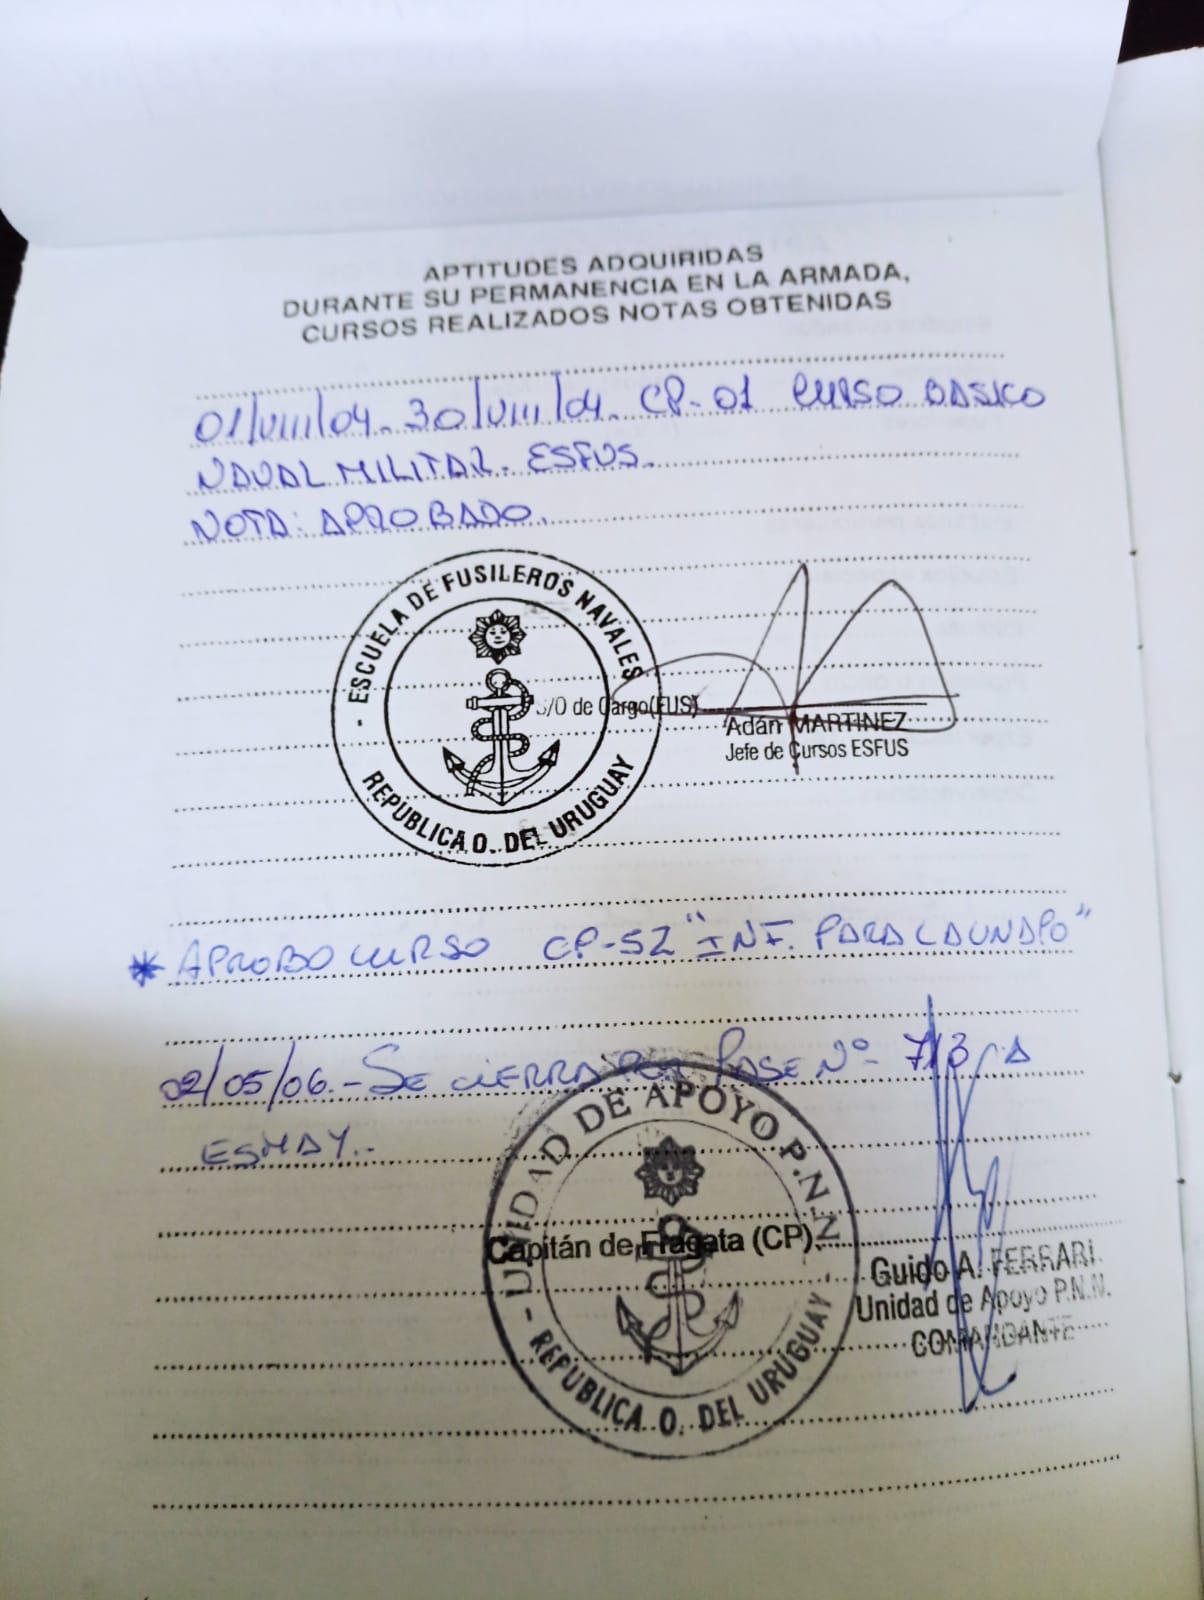 APTITUDES ADQUIRIDAS
DURANTE SU PERMANENCIA EN LA ARMADA,
CURSOS REALIZADOS NOTAS OBTENIDAS
01/VIII/04 - 30/VIII/04. CP-01 CURSO BASICO
NAVAL MILITAR - ESFUS.
NOTA: APROBADO.
- ESCUELA DE FUSILEROS NAVALES -
REPUBLICA O. DEL URUGUAY
S/O de Cargo(FUS)
Adán MARTINEZ
Jefe de Cursos ESFUS
* APROBO CURSO CP-52 "INF. PARA
02/05/06.- SE CIERRA POR PASE Nº 713 A
ESMAY.-
- UNIDAD DE APOYO P.N.N. -
REPUBLICA O. DEL URUGUAY
Capitán de Fragata (CP)
Guido A. FERRARI
Unidad de Apoyo P.N.N.
COMANDANTE